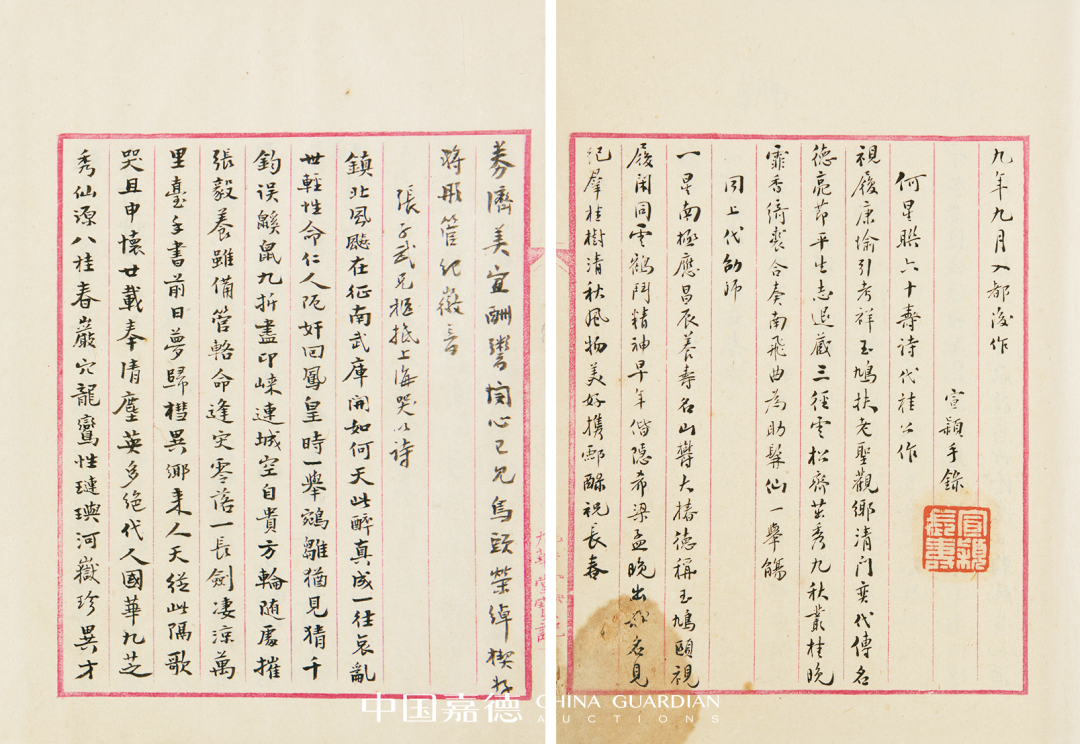 九年九月入都後作
宣穎手錄
何星聯六十壽詩代桂公作
視履康愉引考祥玉鳩扶老聖觀鄉清門奕代傳名
德亮節平生志退藏三徑雲松齊茁秀九秋叢桂晚
霏香綺裘合奏南飛曲為助髯仙一舉觴
同上代劬師
一星南極應昌辰養壽名山齊大椿德稱玉鳩頤視
履閑同雲鶴鬥精神早年偕隱希梁孟晚出名見
紀羣桂樹清秋風物美好携酃醁祝長春
券濟美宜酬心已兄馬頭榮綽楔好
將彤管紀徽音
張子武兄柩抵上海哭以詩
鎮北風飈在征南武庫開如何天此醉真成一往哀亂
世輕性命仁人阨奸回鳳皇時一舉鵷雛猶見猜千
鈞误鼷鼠九折盡邛崍連城空自貴方輪随處摧
張毅養雖備管輅命逢灾零落一長劍凄涼萬
里臺手書前日夢歸櫬異鄉来人天從此隔歌
哭且申懷廿載奉清塵英多絕代人國華九芝
秀仙源八桂春巖穴龍鸞性璉璵河嶽珍異才
宣穎
中国嘉德 CHINA GUARDIAN
AUCTIONS